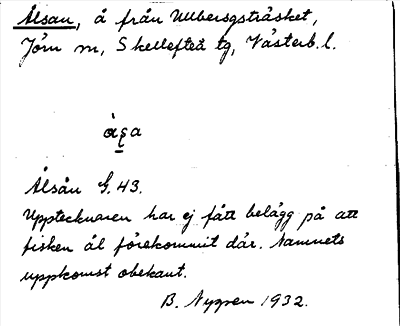 Ålsan, å från Ullbergsträsket,
Jörn m, Skellefteå tg, Västerb. l.
Ålsån G. 43.
Upptecknaren har ej fått belägg på att
fisken ål förekommit där. Namnets
uppkomst obekant.
B. Nygren 1932.